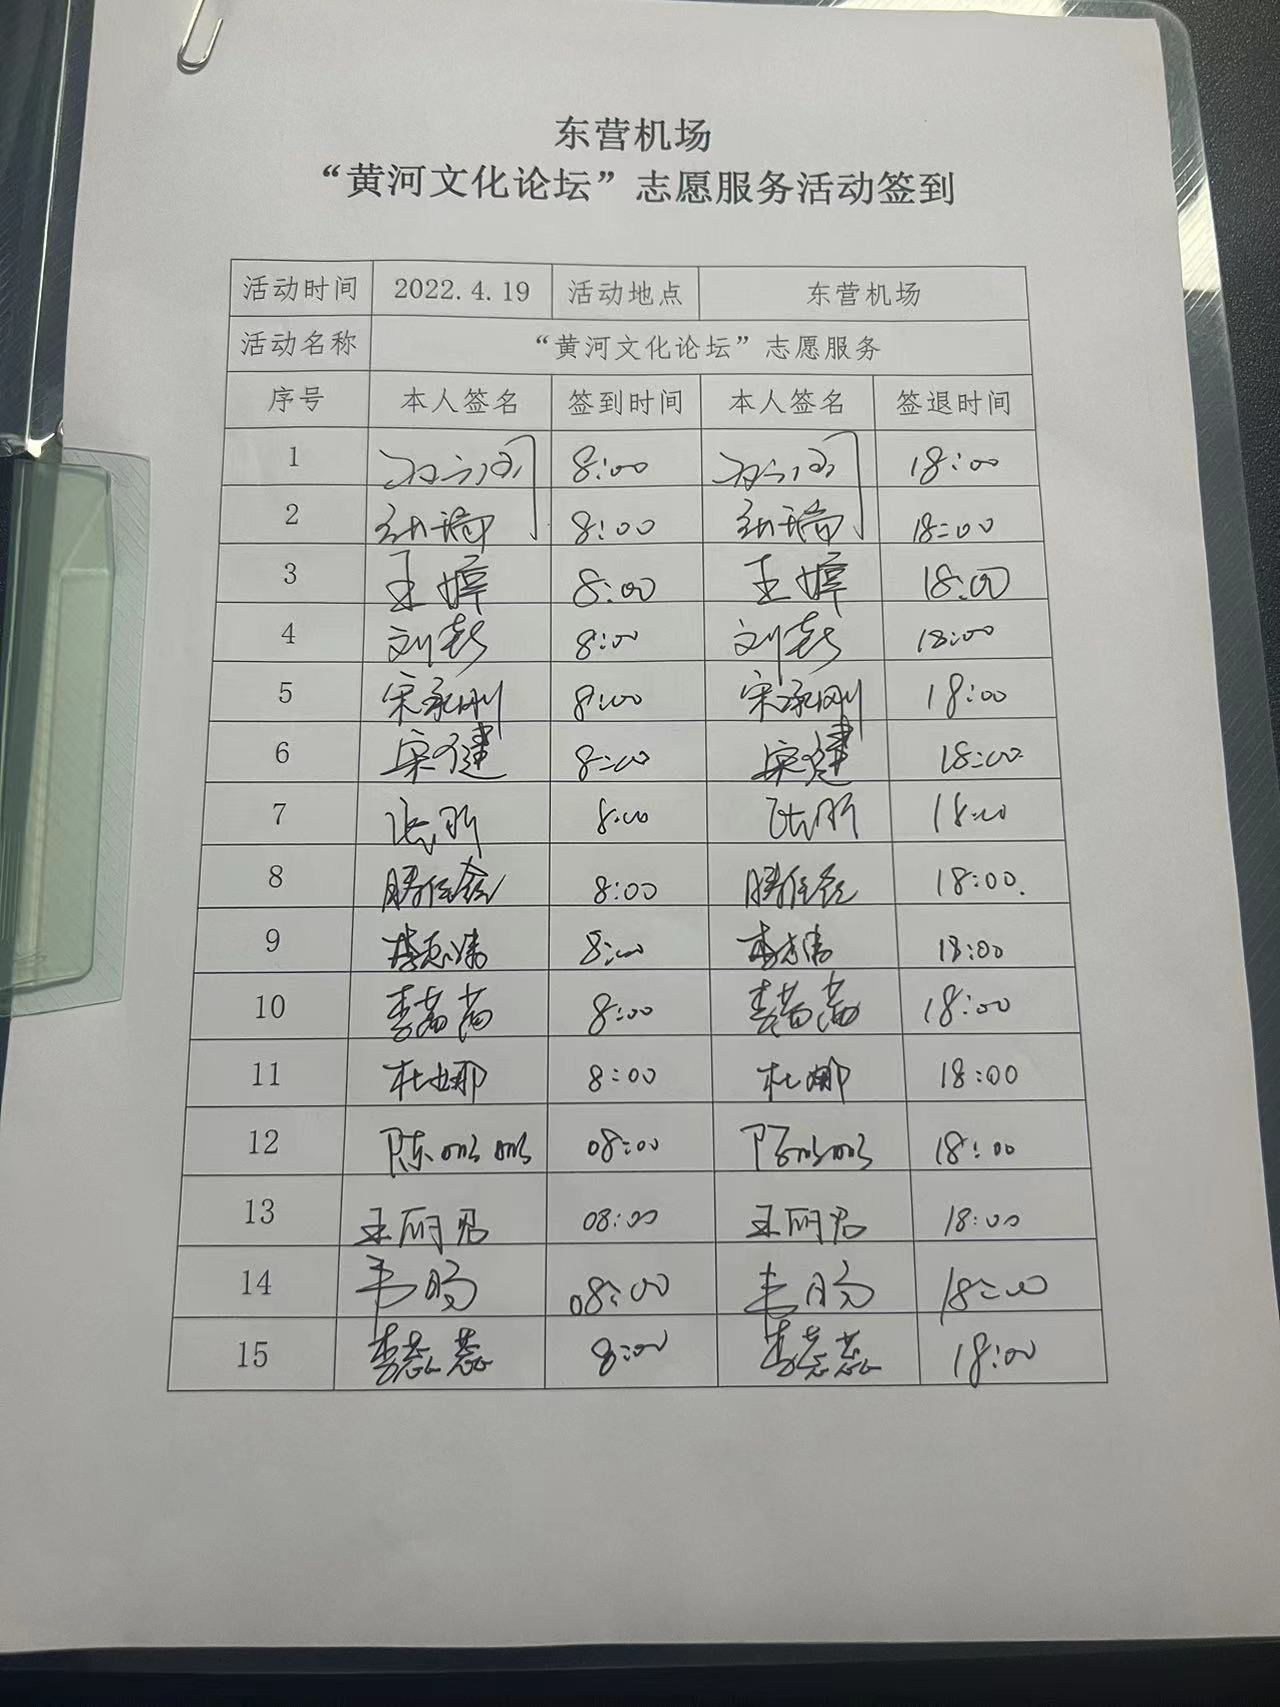 东营机场
“黄河文化论坛”志愿服务活动签到
活动时间 2022.4.19 活动地点 东营机场
活动名称 “黄河文化论坛”志愿服务
序号 本人签名 签到时间 本人签名 签退时间
1 8:00 18:00
2 8:00 18:00
3 王婷 8:00 王婷 18:00
4 刘彭 8:00 刘彭 18:00
5 宋承刚 8:00 宋承刚 18:00
6 宋健 8:00 宋健 18:00
7 张昕 8:00 张昕 18:00
8 8:00 18:00.
9 李志伟 8:00 李志伟 18:00
10 李茜茜 8:00 李茜茜 18:00
11 杜娜 8:00 杜娜 18:00
12 陈明明 08:00 陈明明 18:00
13 王丽君 08:00 王丽君 18:00
14 08:00 18:00
15 李蕊蕊 8:00 李蕊蕊 18:00